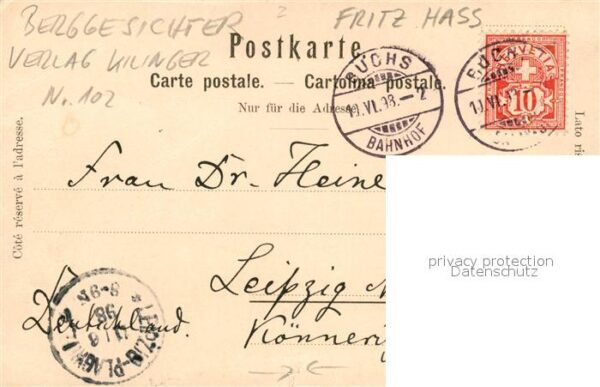 BERGGESICHTER
FRITZ HASS
VERLAG KILLINGER
N. 102
Postkarte.
Carte postale. — Cartolina postale.
Nur für die Adresse
BUCHS
11.VI.98.—2
BAHNHOF
HELVETIA
10
Côté réservé à l'adresse.
Lato ris
Frau Dr. Heine
Leipzig
Deutschland.
Könneri
LEIPZIG-PLAGWITZ
8-9N
98
privacy protection
Datenschutz